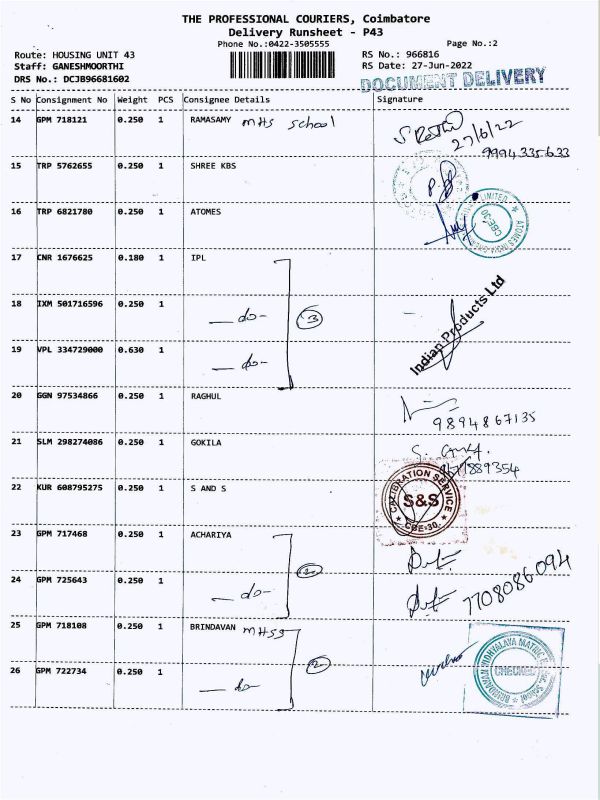 THE PROFESSIONAL COURIERS, Coimbatore
Delivery Runsheet - P43
Phone No.:0422-3505555
Page No.:2
Route: HOUSING UNIT 43
RS No.: 966816
Staff: GANESHMOORTHI
RS Date: 27-Jun-2022
DRS No.: DCJB96681602
DOCUMENT DELIVERY
S No Consignment No Weight PCS Consignee Details Signature
14 GPM 718121 0.250 1 RAMASAMY MHS School
27/6/22
9994335633
15 TRP 5762655 0.250 1 SHREE KBS
16 TRP 6821780 0.250 1 ATOMES
LIMITED ATOMES CBE-30
17 CNR 1676625 0.180 1 IPL
18 IXM 501716596 0.250 1
-do- 3
Indian Products Ltd
19 VPL 334729000 0.630 1
-do-
20 GGN 97534866 0.250 1 RAGHUL
9894867135
21 SLM 298274086 0.250 1 GOKILA
22 KUR 608795275 0.250 1 S AND S
CALIBRATION SERVICE
S&S
CBE-30.
23 GPM 717468 0.250 1 ACHARIYA
24 GPM 725643 0.250 1
-do-
7708086094
25 GPM 718108 0.250 1 BRINDAVAN MHSS
26 GPM 722734 0.250 1
-do- 2
BRINDAVAN VIDHYALAYA MATRIC School